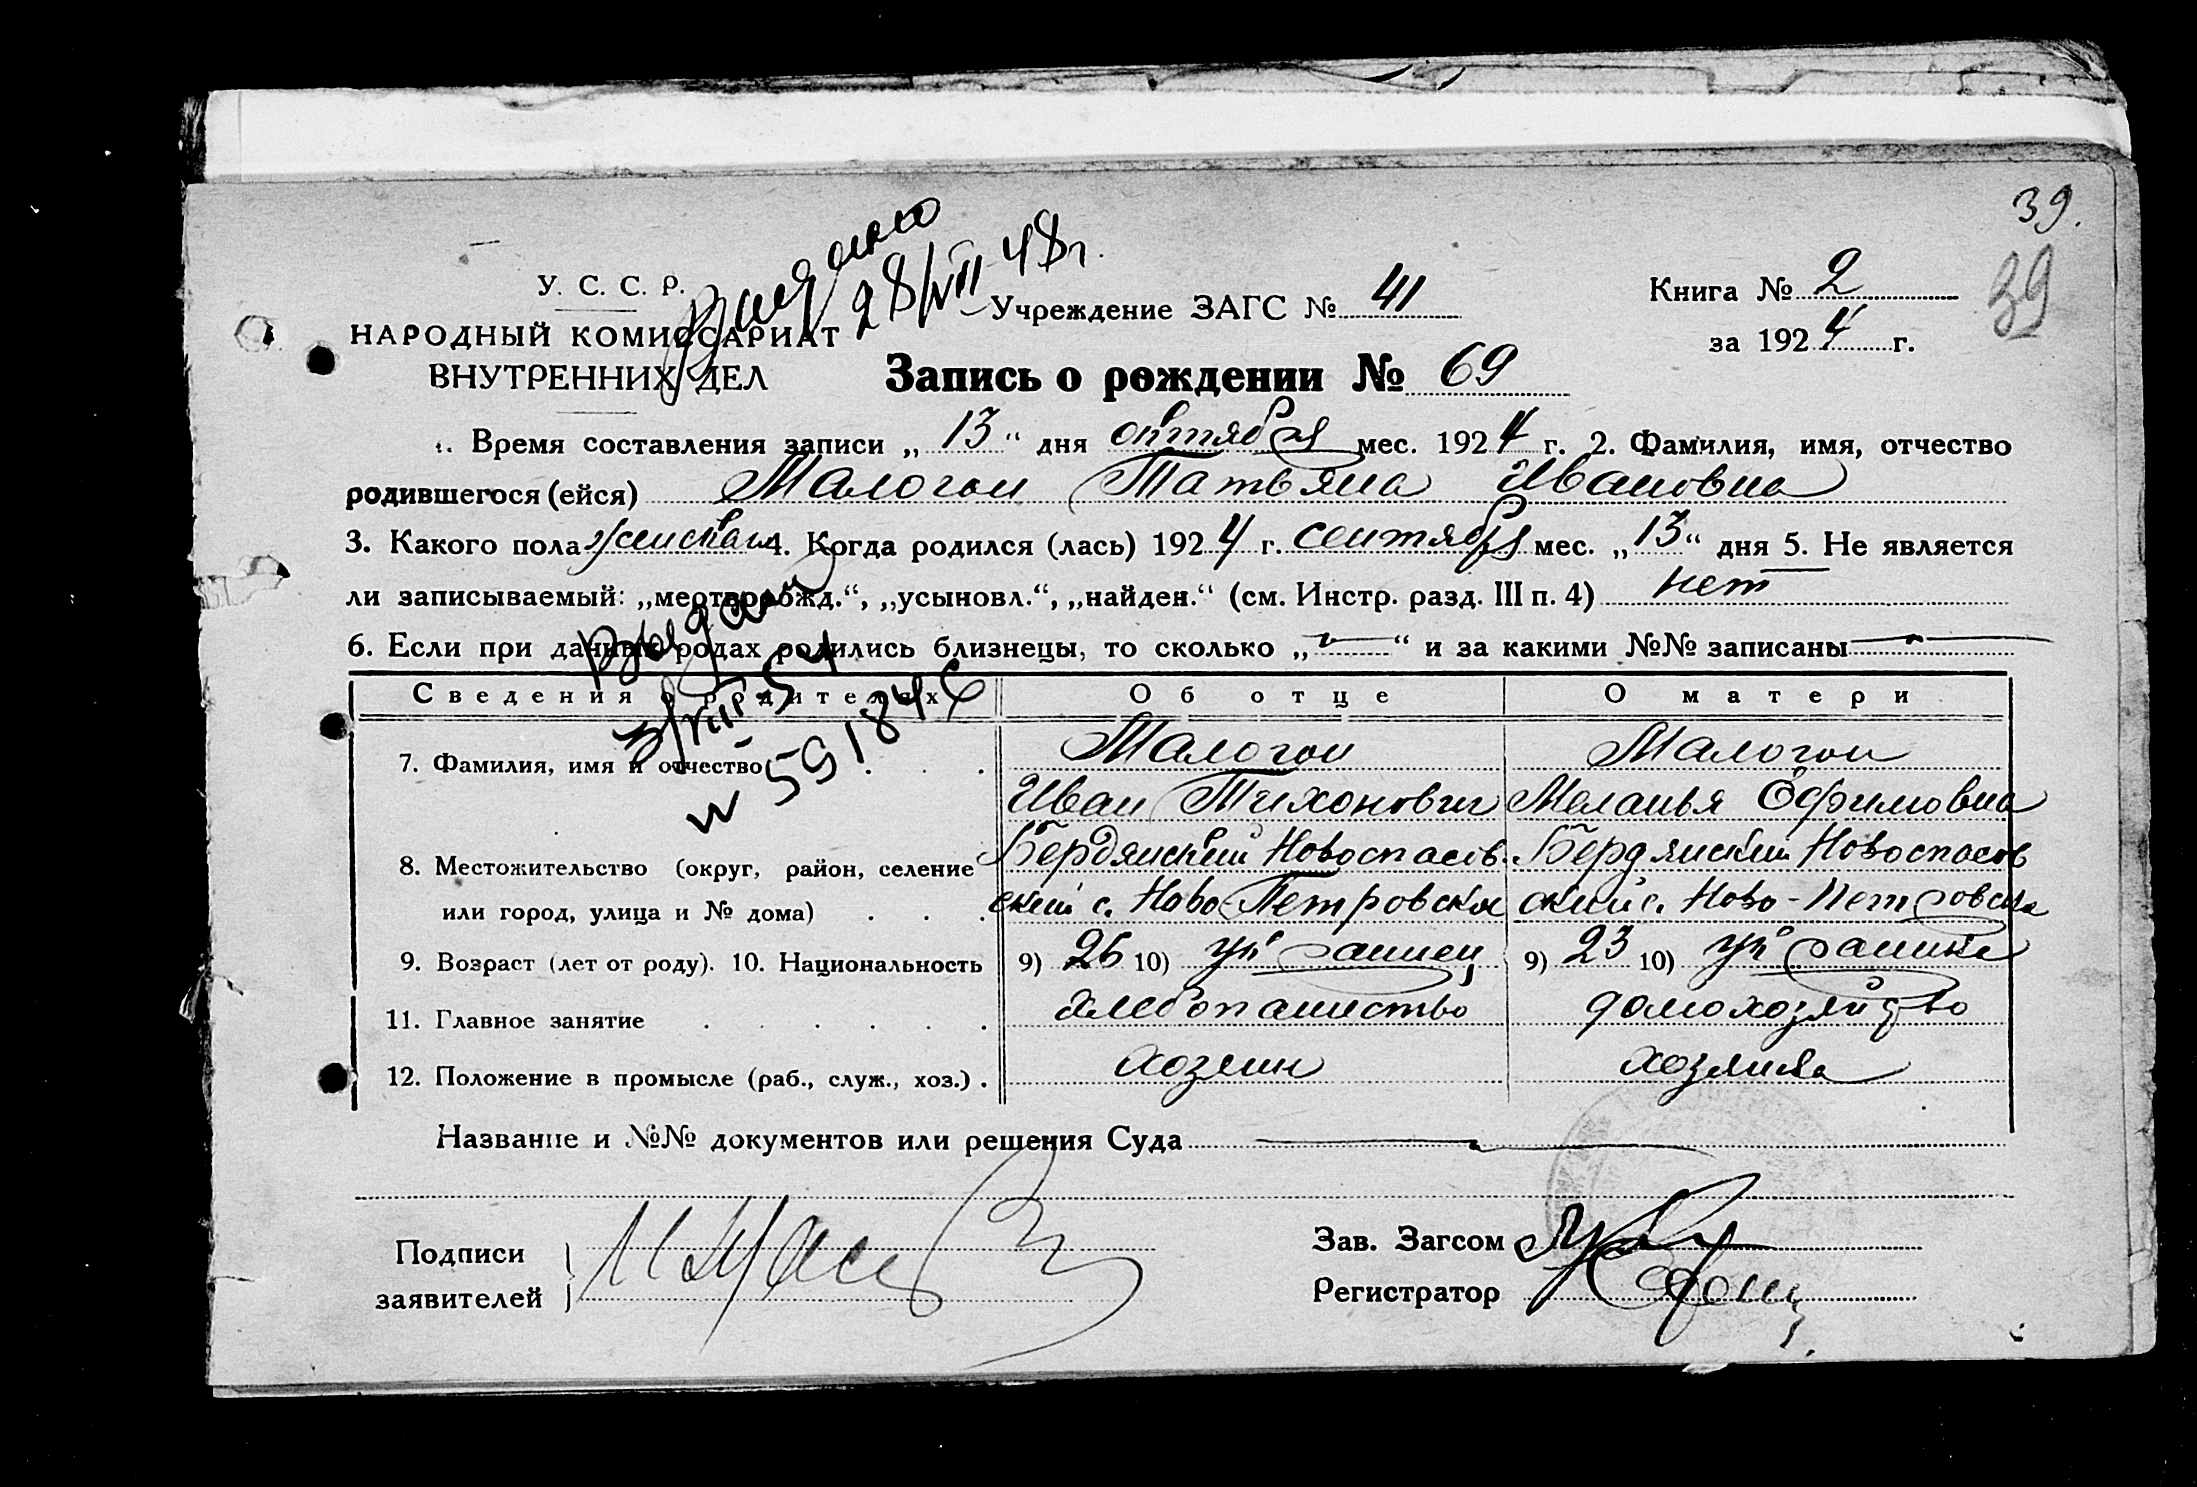 39.
39
Выдано
28/VIII 48г.
У. С. С. Р.
НАРОДНЫЙ КОМИССАРИАТ
ВНУТРЕННИХ ДЕЛ
Учреждение ЗАГС № 41
Книга № 2
за 1924 г.
Запись о рождении № 69
1. Время составления записи „13“ дня октября мес. 1924 г. 2. Фамилия, имя, отчество
родившегося (ейся) Малогон Татьяна Ивановна
3. Какого пола женская 4. Когда родился (лась) 1924 г. сентября мес. „13“ дня 5. Не является
ли записываемый: „мертворожд.“, „усыновл.“, „найден.“ (см. Инстр. разд. III п. 4) нет
6. Если при данных родах родились близнецы, то сколько „—“ и за какими №№ записаны —
Выдан
591844
Сведения о родителях Об отце О матери
7. Фамилия, имя и отчество . . . Малогон Малогон
Иван Тихонович Меланья Ефимовна
8. Местожительство (округ, район, селение Бердянский Новоспасов- Бердянский Новоспасов
или город, улица и № дома) . . . ский с. Ново-Петровска ский с. Ново-Петровска
9. Возраст (лет от роду). 10. Национальность 9) 26 10) украинец 9) 23 10) украинка
11. Главное занятие . . . . . . хлебопашество домохозяйство
12. Положение в промысле (раб., служ., хоз.) . хозяин хозяйка
Название и №№ документов или решения Суда —
Подписи
заявителей
Зав. Загсом
Регистратор